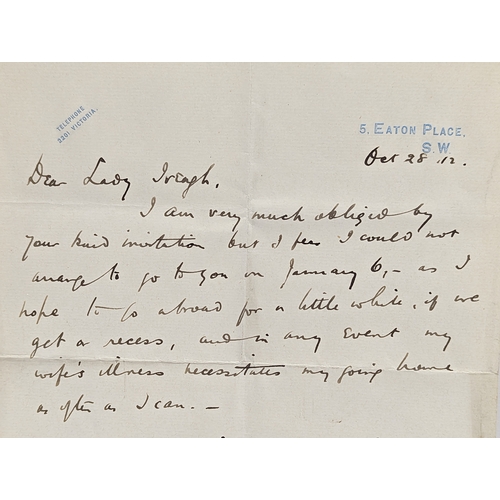 TELEPHONE
3201 VICTORIA.
5, EATON PLACE,
S.W.
Oct 28 .12.
Dear Lady Iveagh,
I am very much obliged by
your kind invitation but I fear I could not
arrange to go to you on January 6, – as I
hope to go abroad for a little while, if we
get a recess, and in any event my
wife's illness necessitates my going home
as often as I can. –